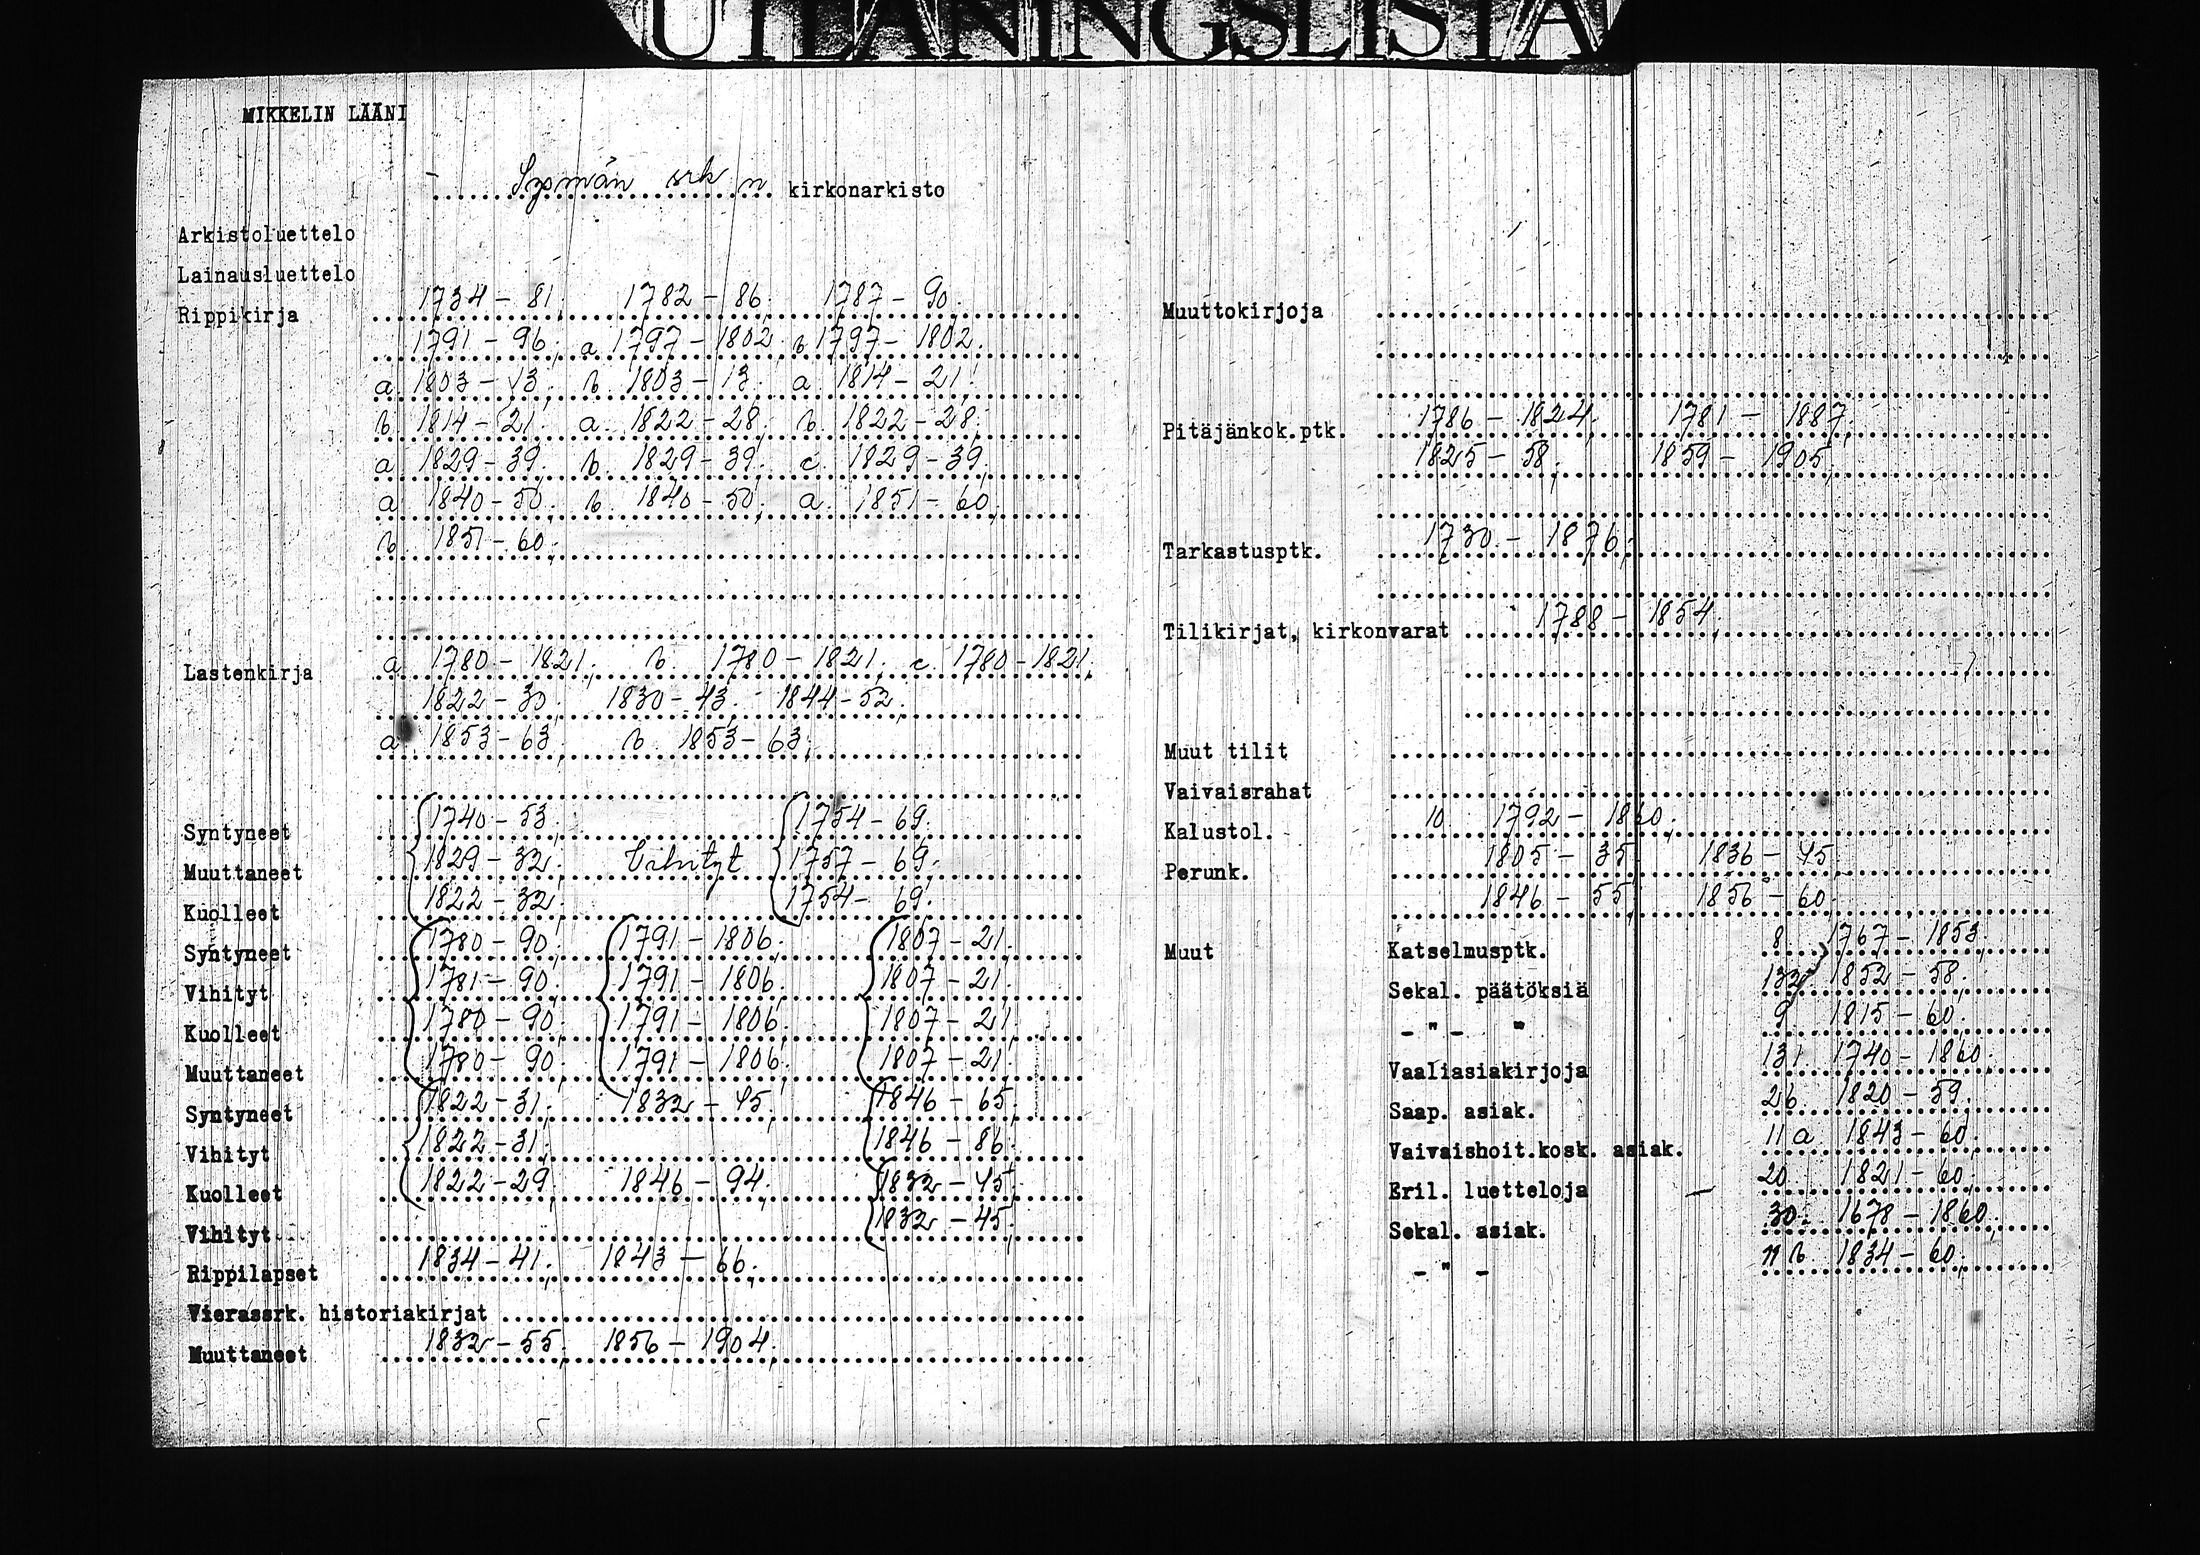 UTLÅNINGSLISTA
MIKKELIN LÄÄNI
Sysmän srk:n kirkonarkisto
Arkistoluettelo
Lainausluettelo
Rippikirja 1734-81; 1782-86; 1787-90;
1791-96; a 1797-1802 b 1797-1802;
a. 1803-13; b. 1803-13; a. 1814-21;
b. 1814-21; a. 1822-28; b. 1822-28;
a. 1829-39; b. 1829-39; c. 1829-39;
a. 1840-50; b. 1840-50; a. 1851-60;
b. 1851-60;
Lastenkirja a. 1780-1821; b. 1780-1821; c. 1780-1821;
1822-30; 1830-43; 1844-52;
a. 1853-63; b. 1853-63;
Syntyneet 1740-53; 1754-69;
Muuttaneet 1829-32; Vihityt 1757-69;
Kuolleet 1822-32; 1754-69;
Syntyneet 1780-90; 1791-1806; 1807-21;
Vihityt 1781-90; 1791-1806; 1807-21;
Kuolleet 1780-90; 1791-1806; 1807-21;
Muuttaneet 1780-90; 1791-1806; 1807-21;
Syntyneet 1822-31; 1832-45; 1846-65;
Vihityt 1822-31; 1846-86;
Kuolleet 1822-29; 1846-94; 1832-45;
Vihityt 1832-45;
Rippilapset 1834-41; 1843-66;
Vierassrk. historiakirjat
Muuttaneet 1832-55; 1856-1904;
Muuttokirjoja
Pitäjänkok.ptk. 1786-1824; 1781-1887;
1825-58; 1859-1905;
Tarkastusptk. 1730-1876;
Tilikirjat, kirkonvarat 1788-1854;
Muut tilit
Vaivaisrahat
Kalustol. 10 1792-1860;
Perunk. 1805-35; 1836-45;
1846-55; 1856-60;
Muut Katselmusptk. 8 1767-1853;
Sekal. päätöksiä 132 1852-58;
- " - " 9 1815-60;
Vaaliasiakirjoja 131 1740-1860;
Saap. asiak. 26 1820-59;
Vaivaishoit.kosk. asiak. 11 a 1843-60;
Eril. luetteloja 20 1821-60;
Sekal. asiak. 30. 1678-1860;
- " - 11 b 1834-60;